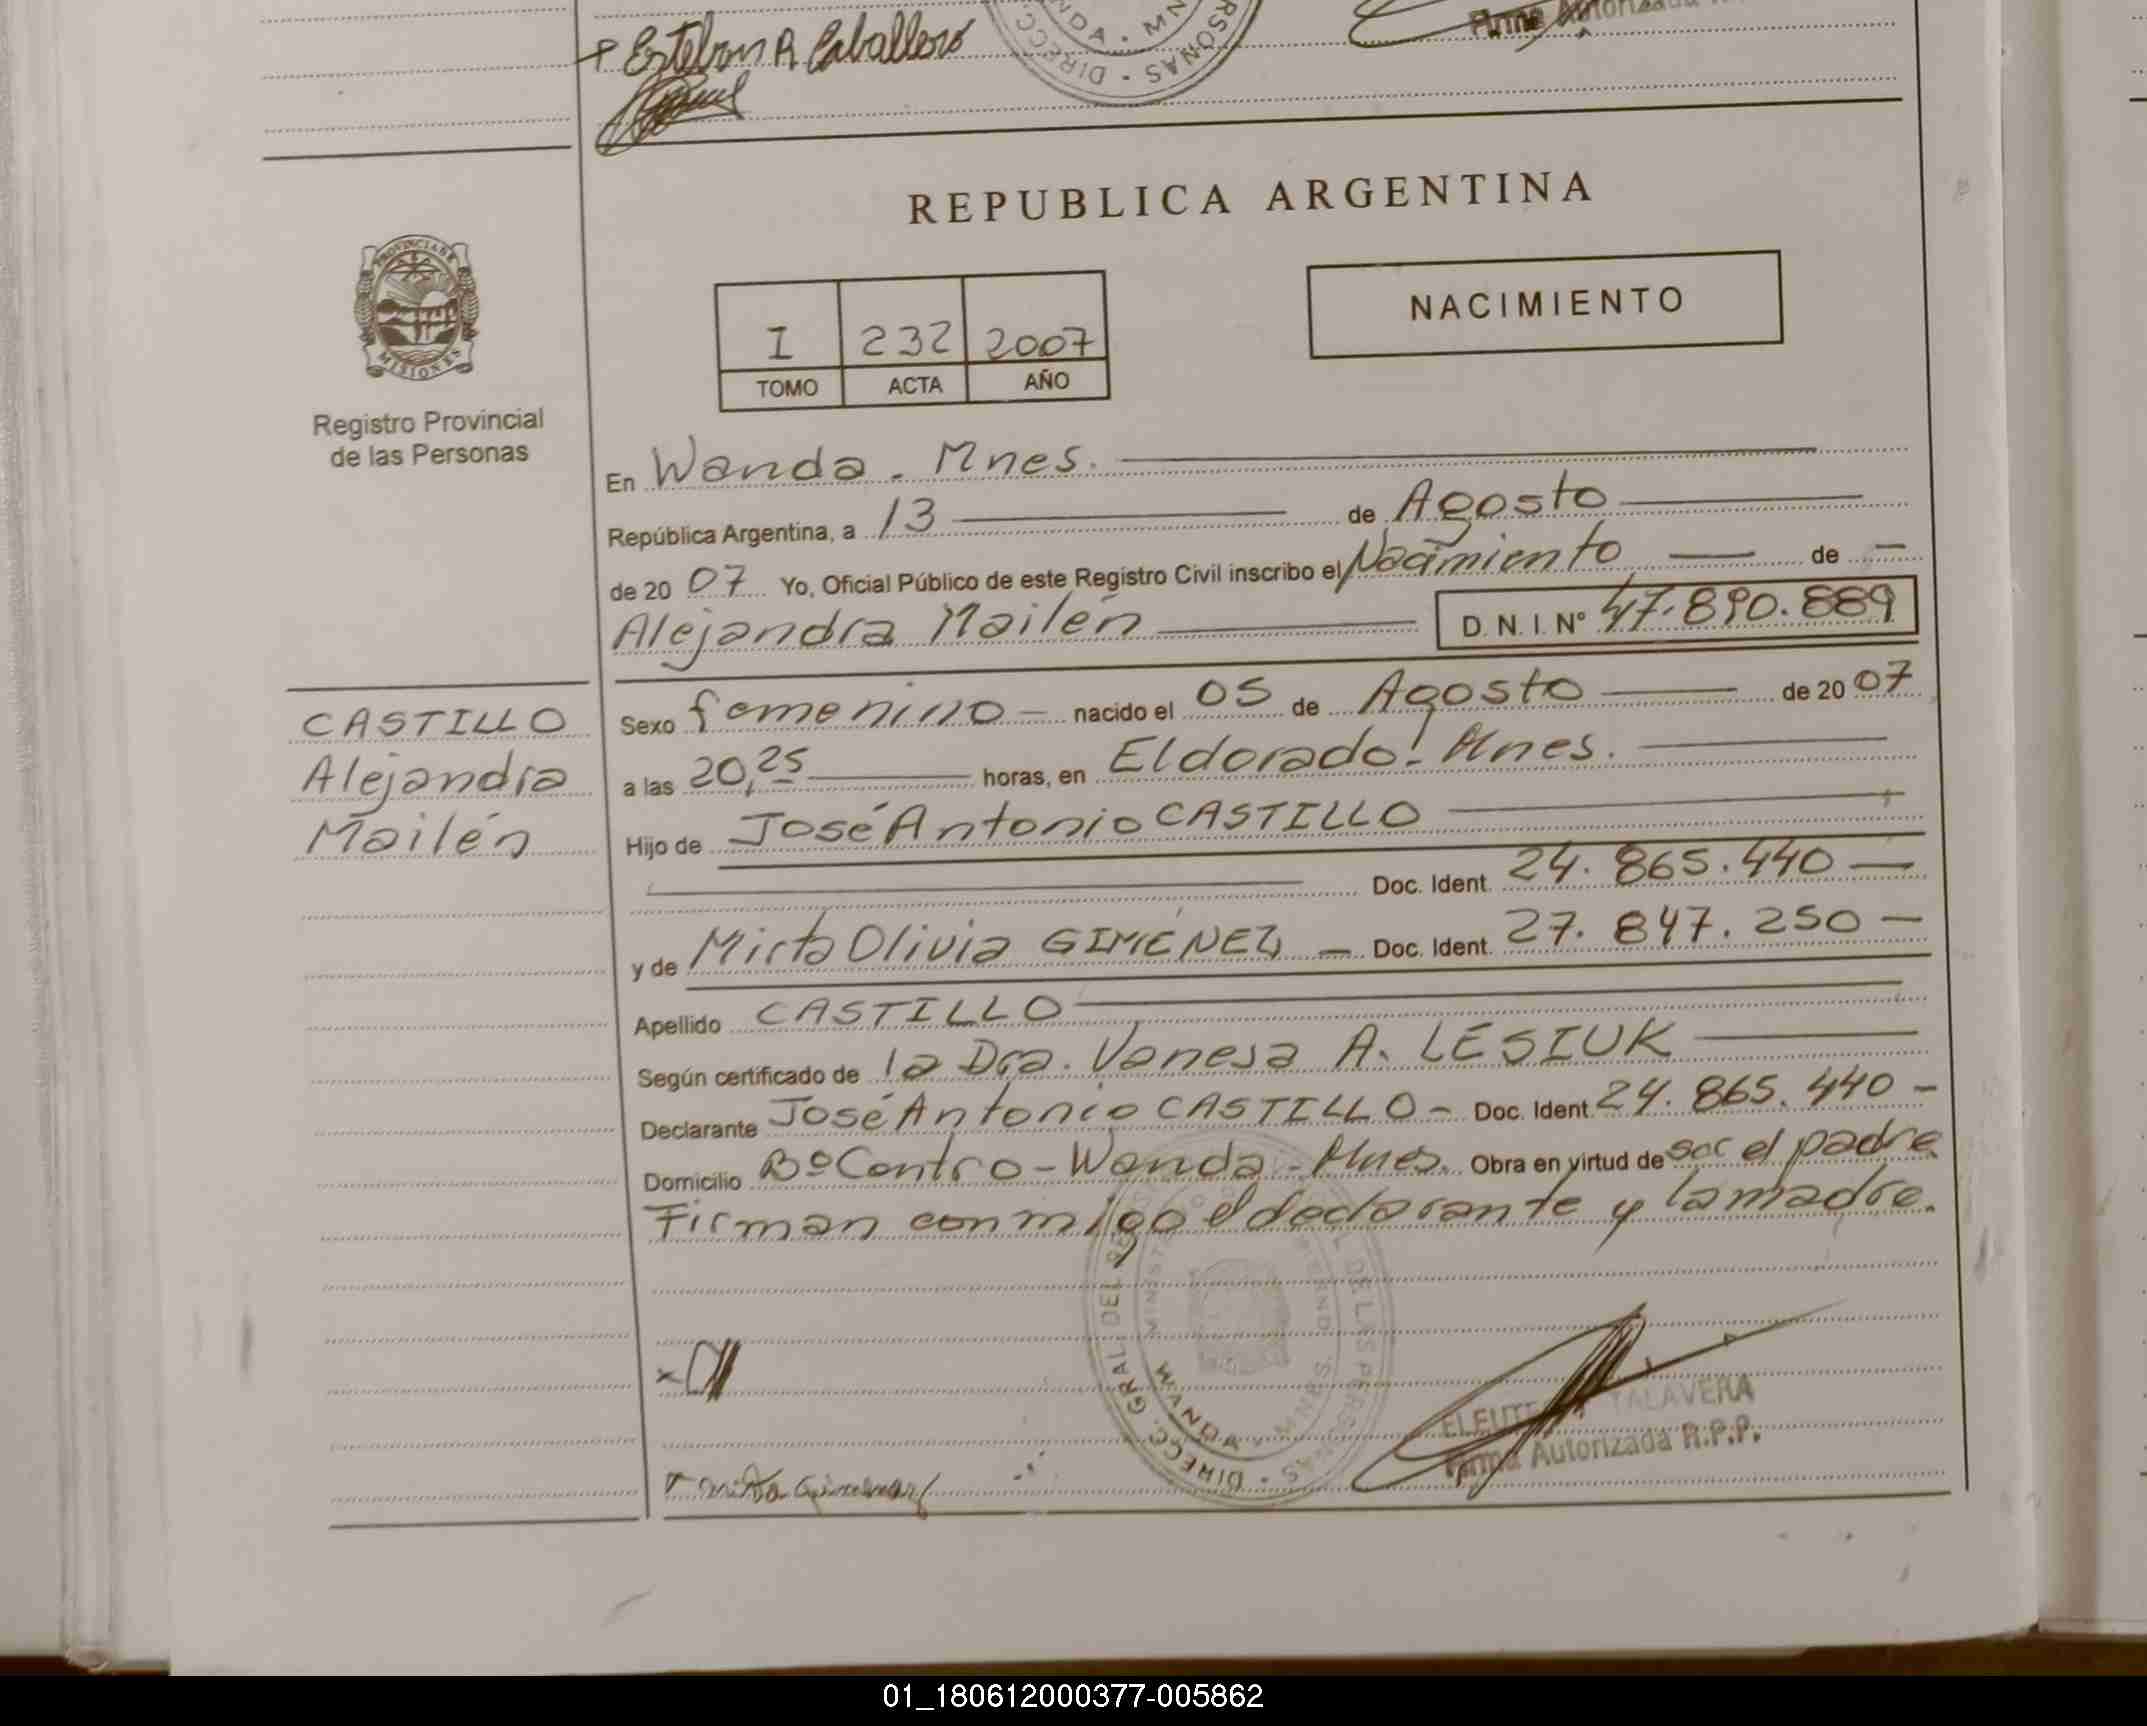 + Esteban A Caballero
NDA · MN
DIRECC
RSONAS
Firma Autorizada
REPUBLICA ARGENTINA
PROVINCIA DE
MISIONES
Registro Provincial
de las Personas
I 232 2007
TOMO ACTA AÑO
NACIMIENTO
En Wanda - Mnes.
República Argentina, a 13 de Agosto
de 20 07 Yo, Oficial Público de este Registro Civil inscribo el Nacimiento de
Alejandra Mailén D. N. I. Nº 47.890.889
CASTILLO
Alejandra
Mailén
Sexo femenino - nacido el 05 de Agosto de 20 07
a las 20,25 horas, en Eldorado - Mnes.
Hijo de José Antonio CASTILLO
Doc. Ident. 24.865.440
y de Mirta Olivia GIMÉNEZ - Doc. Ident. 27.847.250
Apellido CASTILLO
Según certificado de la Dra. Vanesa A. LESIUK
Declarante José Antonio CASTILLO - Doc. Ident. 24.865.440 -
Domicilio Bº Centro - Wanda - Mnes. Obra en virtud de ser el padre
Firman conmigo el declarante y la madre.
DIRECC. GRAL DEL
DE LAS PERSONAS
WANDA · MNES
TALAVERA
Firma Autorizada R.P.P.
01_180612000377-005862